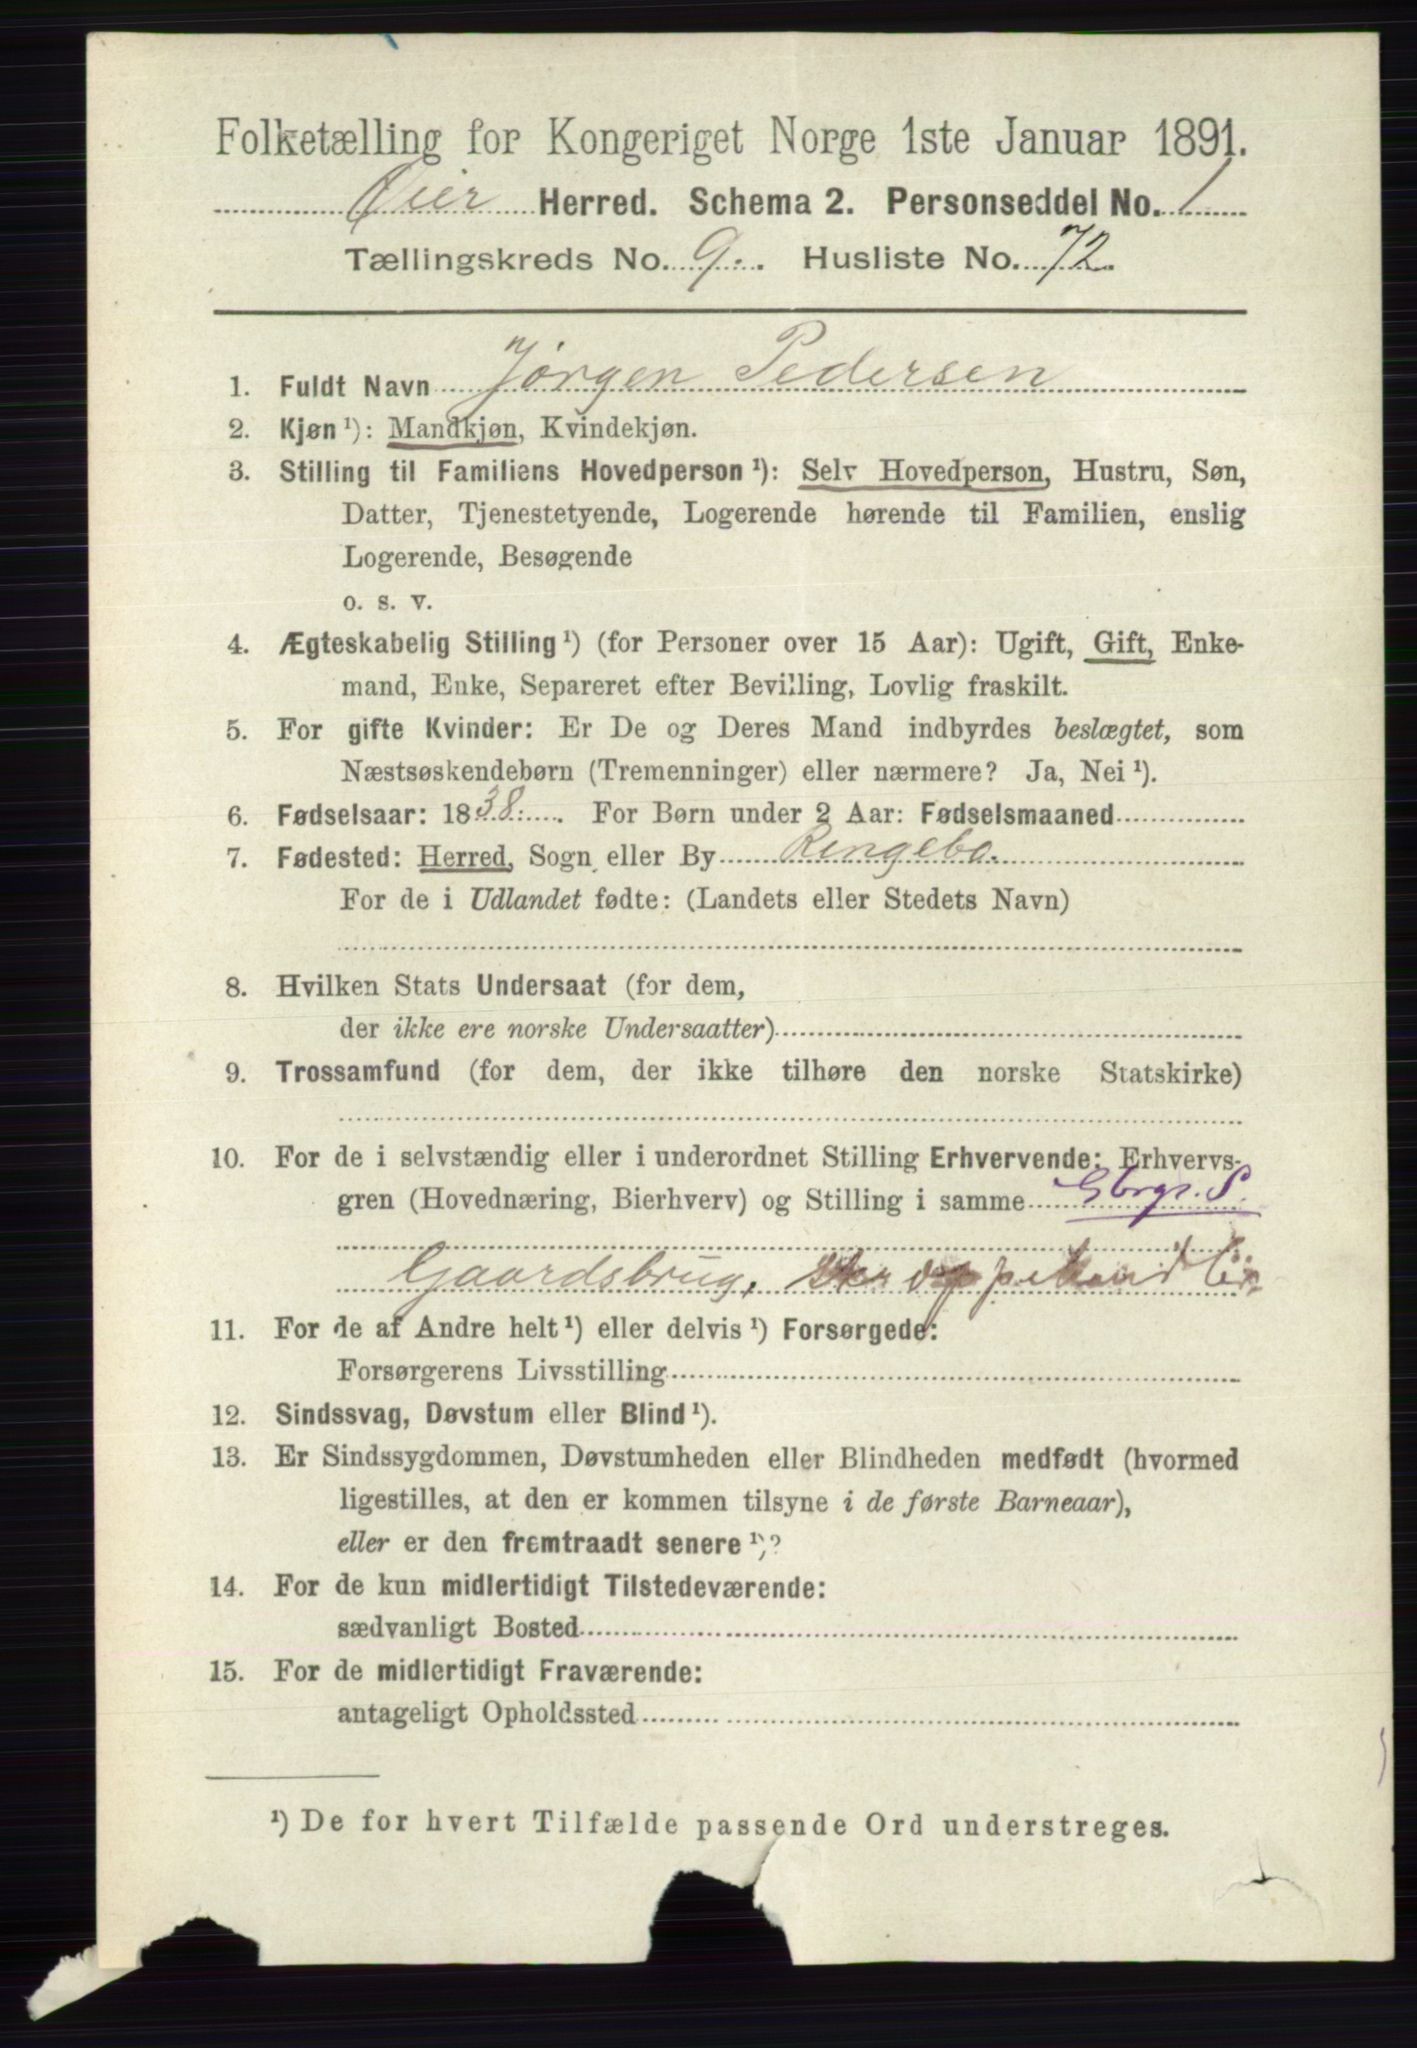 Folketælling for Kongeriget Norge 1ste Januar 1891.
Øier Herred. Schema 2. Personseddel No. 1
Tællingskreds No. 9. Husliste No. 72.
1. Fuldt Navn Jørgen Pedersen
2. Kjøn ¹): Mandkjøn, Kvindekjøn.
3. Stilling til Familiens Hovedperson ¹): Selv Hovedperson, Hustru, Søn,
Datter, Tjenestetyende, Logerende hørende til Familien, enslig
Logerende, Besøgende
o. s. v.
4. Ægteskabelig Stilling ¹) (for Personer over 15 Aar): Ugift, Gift, Enke-
mand, Enke, Separeret efter Bevilling, Lovlig fraskilt.
5. For gifte Kvinder: Er De og Deres Mand indbyrdes beslægtet, som
Næstsøskendebørn (Tremenninger) eller nærmere? Ja, Nei ¹).
6. Fødselsaar: 1838. For Børn under 2 Aar: Fødselsmaaned
7. Fødested: Herred, Sogn eller By Ringebo.
For de i Udlandet fødte: (Landets eller Stedets Navn)
8. Hvilken Stats Undersaat (for dem,
der ikke ere norske Undersaatter)
9. Trossamfund (for dem, der ikke tilhøre den norske Statskirke)
10. For de i selvstændig eller i underordnet Stilling Erhvervende: Erhvervs-
gren (Hovednæring, Bierhverv) og Stilling i samme Gbrgr. S.
Gaardsbrug,
11. For de af Andre helt ¹) eller delvis ¹) Forsørgede:
Forsørgerens Livsstilling
12. Sindssvag, Døvstum eller Blind ¹).
13. Er Sindssygdommen, Døvstumheden eller Blindheden medfødt (hvormed
ligestilles, at den er kommen tilsyne i de første Barneaar),
eller er den fremtraadt senere ¹)?
14. For de kun midlertidigt Tilstedeværende:
sædvanligt Bosted
15. For de midlertidigt Fraværende:
antageligt Opholdssted
¹) De for hvert Tilfælde passende Ord understreges.